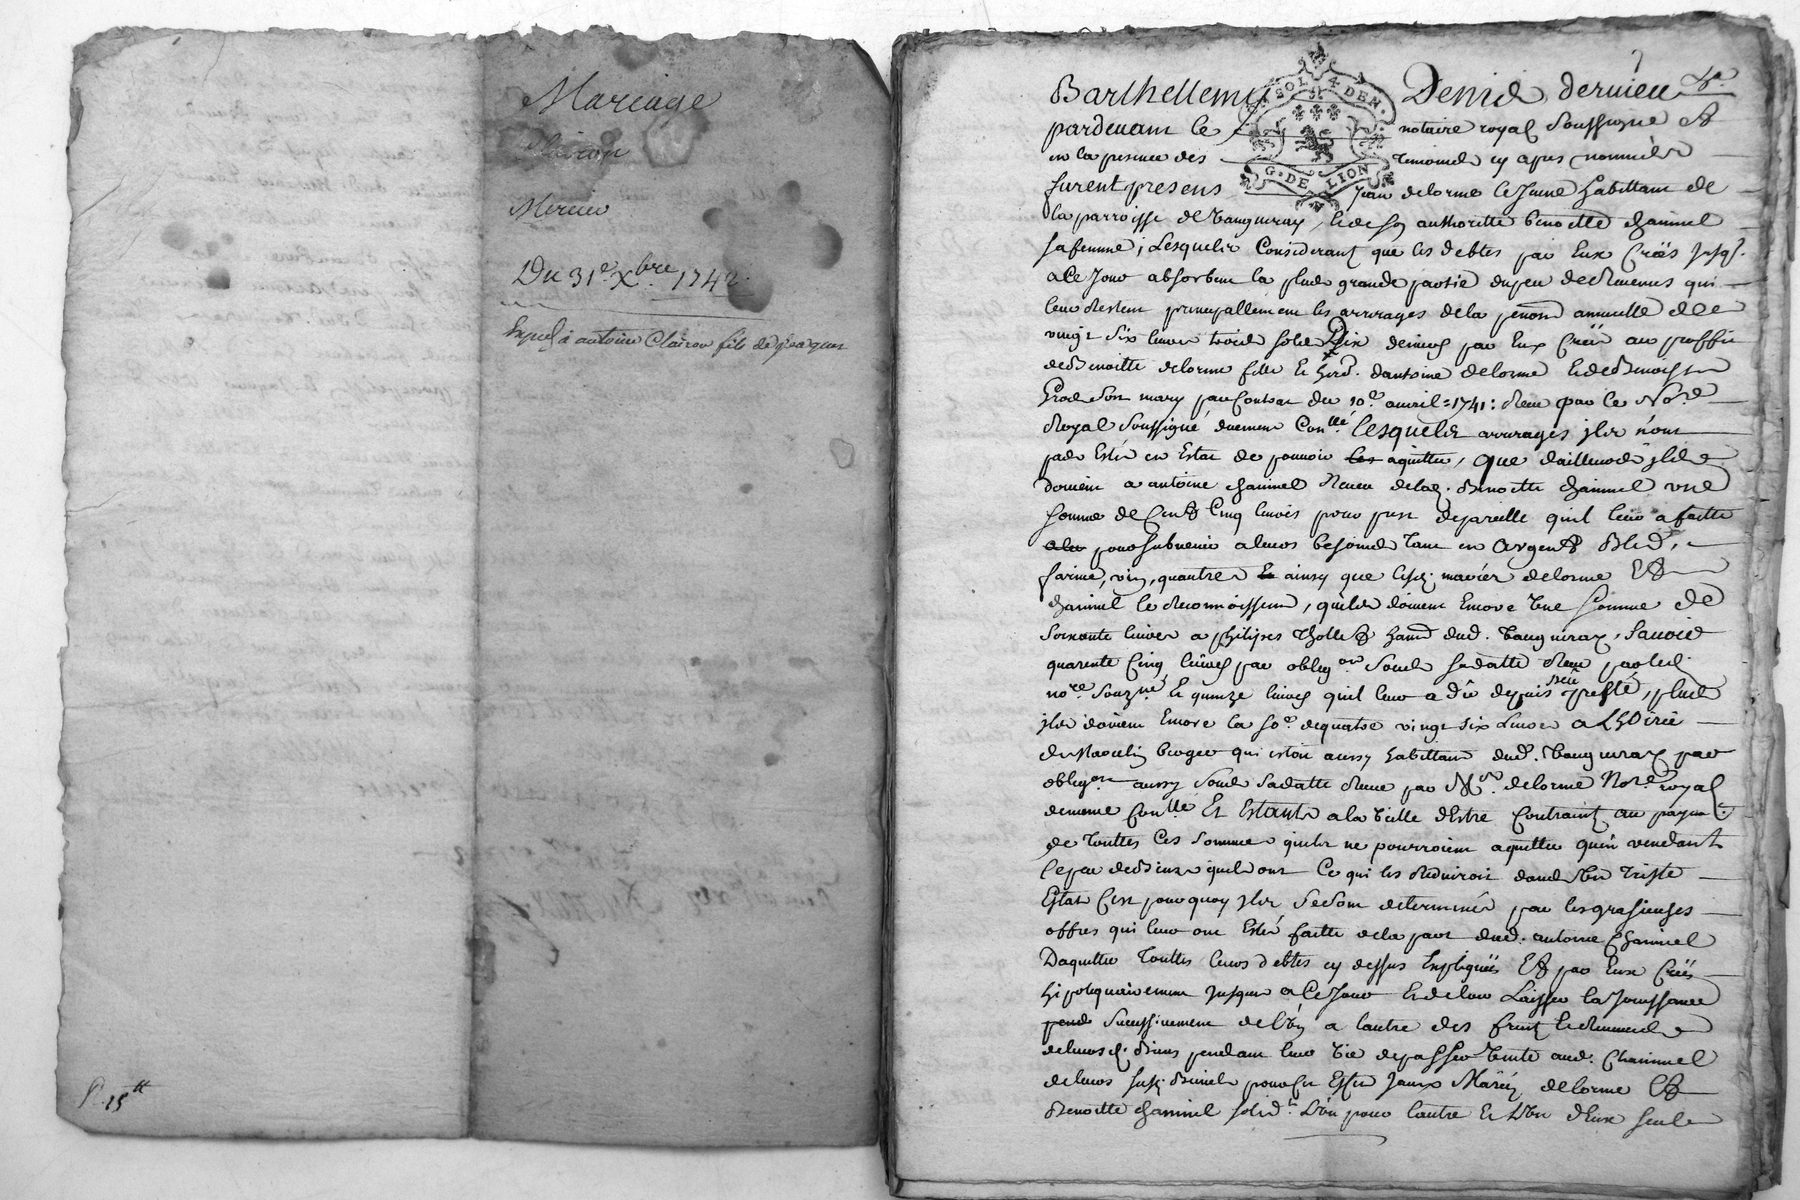 Mariage
Clairon
Mercier
Du 31e Xbre 1742.
Expedié a antoine Clairon fils de jeacques
P. 15tt
Barthellemy Denis dernieu
SOL 4 DEN.
G. DE LION
pardevant le notaire royal soussigne &
en la presence des temoins cy apres nommés
furent presens Jean delorme le Jeune habittant de
la parroisse de Vaugneray, & de son authoritté benoitte chaninel
sa femme, Lesquels Considerant que les debtes par Eux Créés jusq.
a Ce Jour absorbent la plus grande partie du peu de Revenus qui
leur Restent principallement les arrerages de la pension annuelle de
vingt six livres trois sols Dix deniers par Eux Créé au proffit
de Benoitte delorme fille & herre. d'antoine delorme & de Benoiste
son mary par Contrat du 10e. avril 1741: Receu par le Nore
Royal Soussigné duement Conllé Lesquels arrerages ils n'ont
pas Esté en Estat de pouvoir les aquitter, Que d'ailleurs ils
doivent a antoine chaninel neveu de lad. Benoitte chaninel une
somme de Cent Cinq livres pour prest de pareille quil leur a faitte
pour subvenir a leurs besoins tant en argent, Bled,
farine, vin, qu'autres ainsy que lesd. mariés delorme &
chaninel le Reconnoissent, quils doivent Encore Une somme de
soixante livres a philipes Thollet hant dud. Vaugneray, Sauoir
quarente Cinq livres par obligon sous sa datte Receue par led.
nore souzné. & quinze livres quil leur a du depuis presté, plus
ils doivent Encore la so.e de quatre vingt six Livres a L'hoirie
de Maculin berger qui estoit aussy habittant dud. Vaugneray par
obligon aussy sous sa datte Receue par Me. delorme Nore. royal
de meme Conllé Et Estants a la Veille d'Estre Contraint au payemt.
de Touttes Ces sommes quils ne pourroient aquitter quen vendant
le peu de Biens quils ont Ce qui les Reduiroit dans Un Triste
Estat C'est pourquoy ils se sont determinés par les grasieuses
offres qui leur ont Esté faitte de la part dud. antoine Chaninel
D'aquitter Touttes leurs debtes cy dessus Expliquées & par Eux Créés
hipotequairement jusques a Ce Jour & de leur Laisser la Jouissance
successivement de l'Un a l'autre des fruits & Revenus
de leursd. Biens pendant leur Vie de passer Vente aud. Chaninel
de leurs susd. Biens pour Ce Estre Jeanx Mariés delorme &
Benoitte chaninel solidt. L'Un pour l'autre & L'Un d'Eux seul